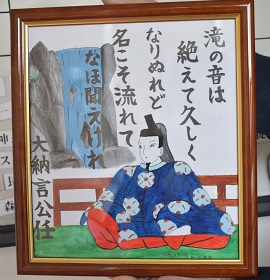 滝の音は
絶えて久しく
なりぬれど
名こそ流れて
なほ聞えけれ
大納言公任